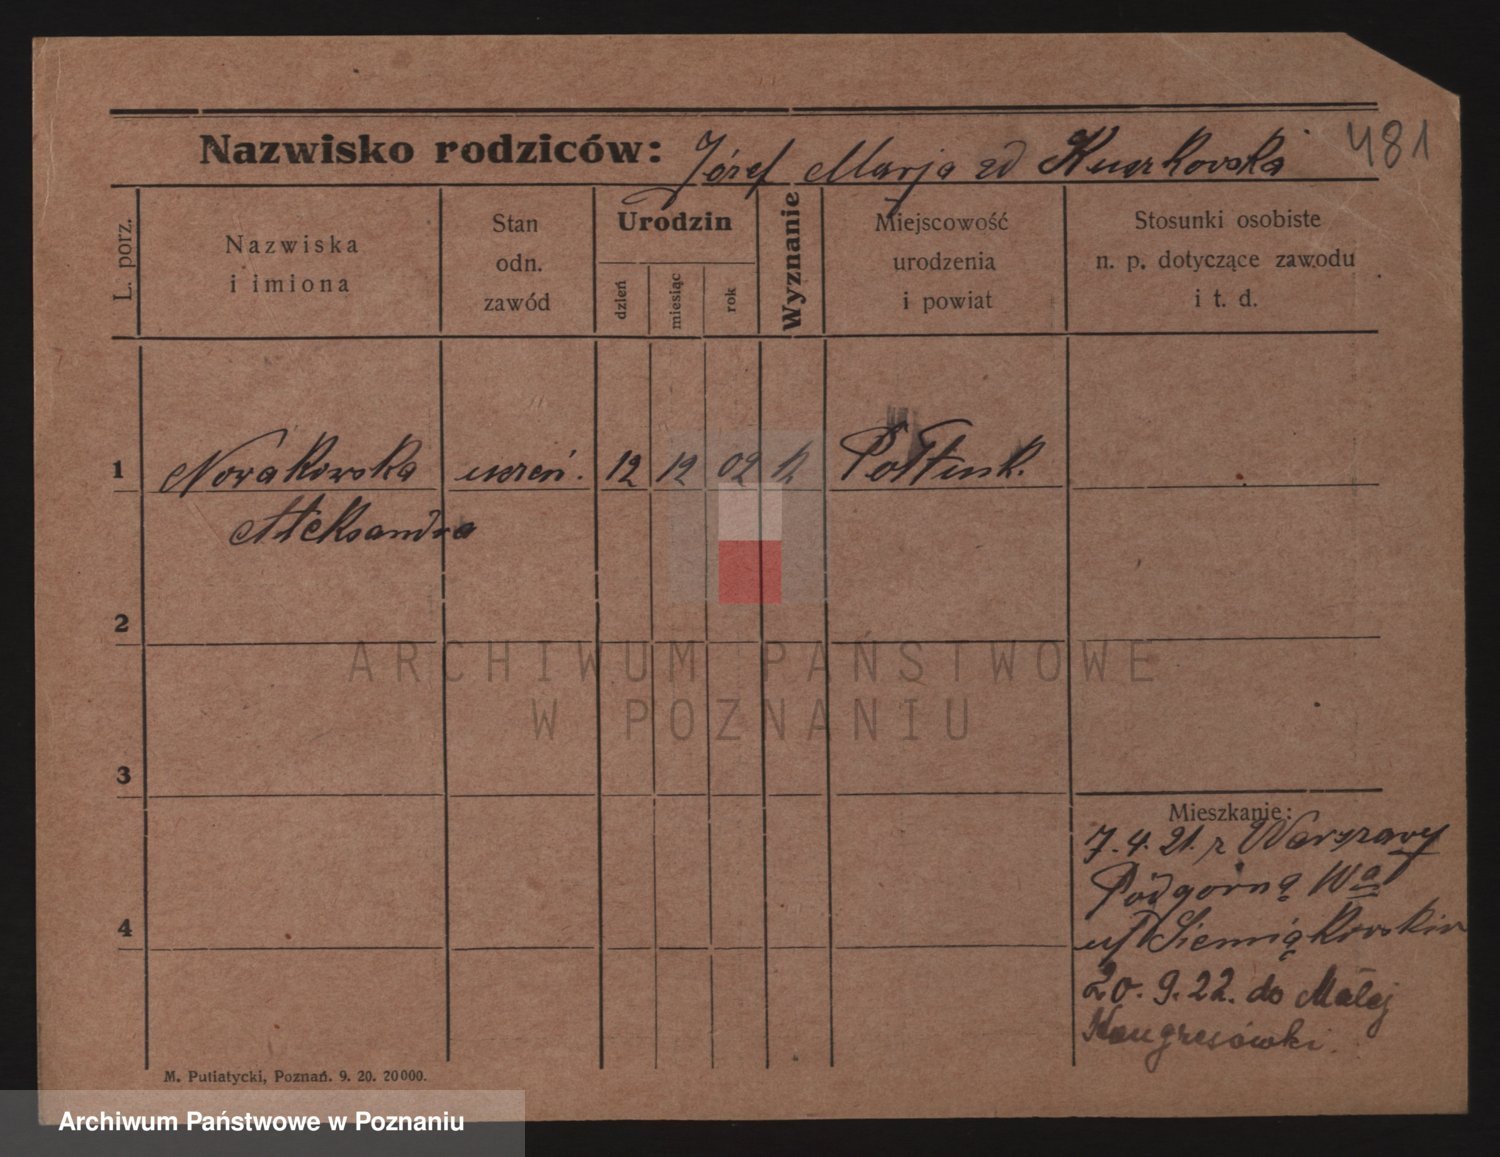 481
Nazwisko rodziców: Józef Marja zd Kurkowska
L. porz.
Nazwiska
i imiona
Stan
odn.
zawód
Urodzin
dzień
miesiąc
rok
Wyznanie
Miejscowość
urodzenia
i powiat
Stosunki osobiste
n. p. dotyczące zawodu
i t. d.
1 Nowakowska uczeń. 12 12 02 k Połtusk.
Aleksandra
2
ARCHIWUM PAŃSTWOWE
W POZNANIU
3
Mieszkanie:
7.4.21. z Warszawy
Podgórna
4
u Siemiątkowskiej
20.9.22. do Małej
Kongresówki.
M. Putiatycki, Poznań. 9. 20. 20000.
Archiwum Państwowe w Poznaniu